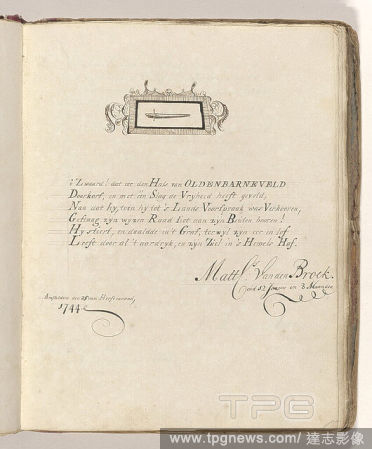 't Zwaard! dat eer den Hals van OLDENBARNEVELD
Doorkorf, en met één Slag de Vryheid heeft geveld,
Nam dat hy, tot 's Lands Voorspraak was Verkooren,
zyn wyzen Raad liet aan zyn Beulen hooren!
Hy stierf, en daalde in 't Graf, terwyl zyn eer en lof
Leeft door al 't aardryk, en zyn Ziel in 's Hemels Hof.
Matth.s Van den Broek.
oud 52 Jaaren en 8 Maanden
Amsterdam den 25 van
1744
TPG
www.tpgnews.com/ 達志影像